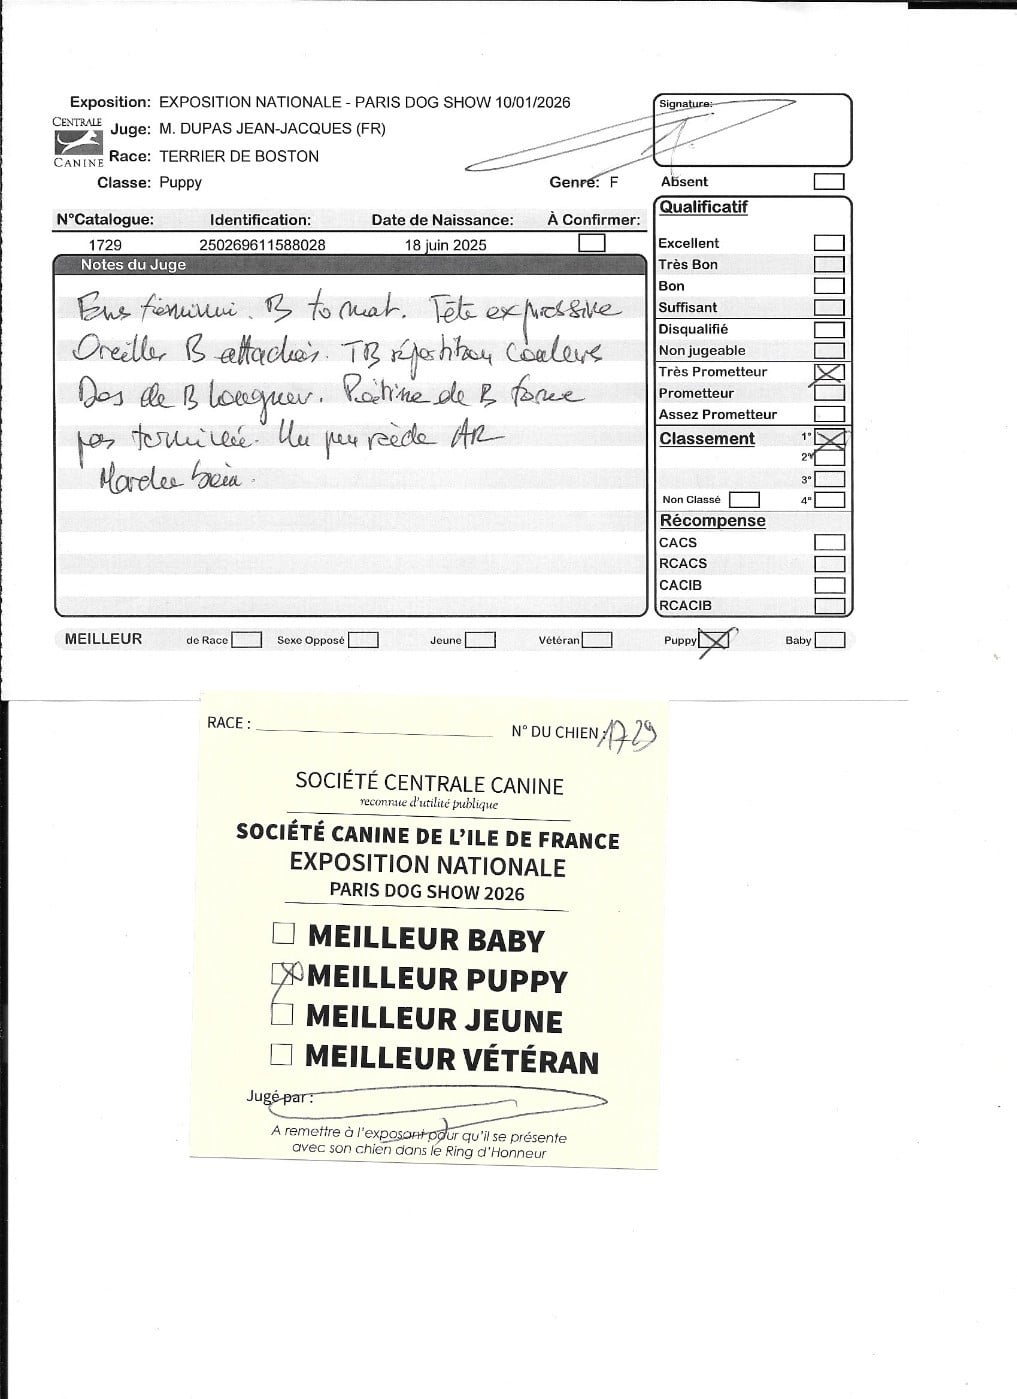 Exposition: EXPOSITION NATIONALE - PARIS DOG SHOW 10/01/2026
CENTRALE CANINE
Juge: M. DUPAS JEAN-JACQUES (FR)
Race: TERRIER DE BOSTON
Classe: Puppy Genre: F
Signature:
Absent
N°Catalogue: Identification: Date de Naissance: À Confirmer:
1729 250269611588028 18 juin 2025
Notes du Juge
Ens féminin. B format. Tête expressive
Oreilles B attachées. TB répartition couleurs
Dos de B longueur. Poitrine de B forme
pas terminée. Un peu raide AR
Marche bien.
Qualificatif
Excellent
Très Bon
Bon
Suffisant
Disqualifié
Non jugeable
Très Prometteur
Prometteur
Assez Prometteur
Classement 1°
2°
3°
Non Classé 4°
Récompense
CACS
RCACS
CACIB
RCACIB
MEILLEUR de Race Sexe Opposé Jeune Vétéran Puppy Baby
RACE : N° DU CHIEN : 1729
SOCIÉTÉ CENTRALE CANINE
reconnue d'utilité publique
SOCIÉTÉ CANINE DE L'ILE DE FRANCE
EXPOSITION NATIONALE
PARIS DOG SHOW 2026
MEILLEUR BABY
MEILLEUR PUPPY
MEILLEUR JEUNE
MEILLEUR VÉTÉRAN
Jugé par :
A remettre à l'exposant pour qu'il se présente
avec son chien dans le Ring d'Honneur